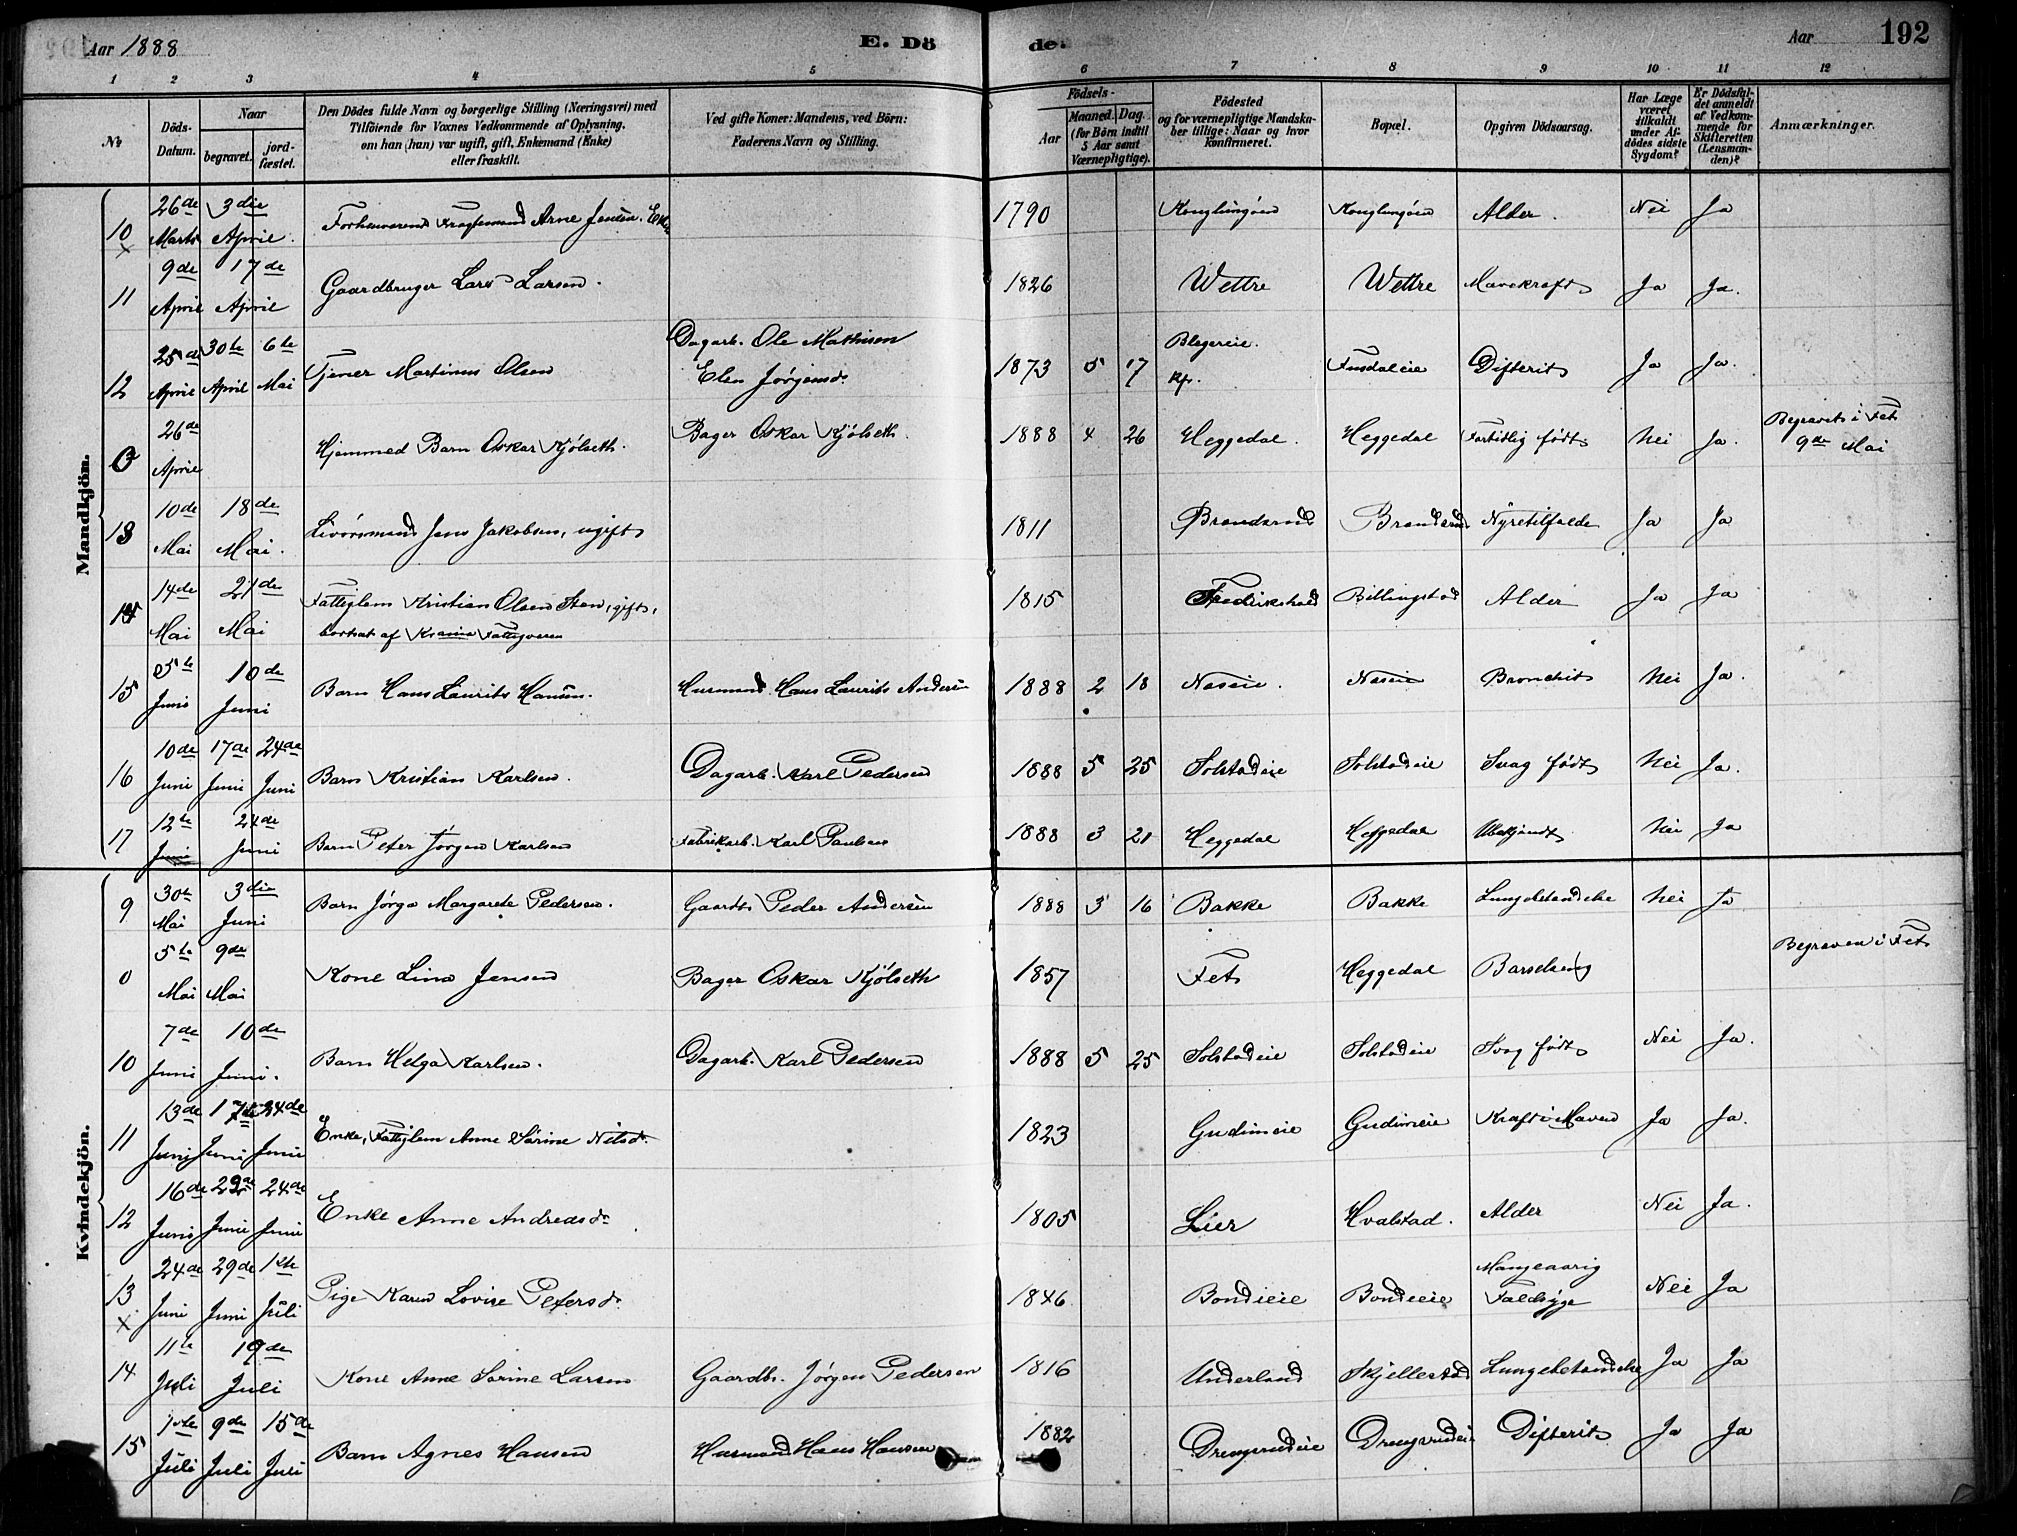 Aar 1888
E. Dö de.
Aar
192
1 2 3 4 5 6 7 8 9 10 11 12
No
Döds-Datum.
Naar
begravet.
jord-fæstet.
Den Dödes fulde Navn og borgerlige Stilling (Næringsvei) med
Tilföiende for Voxnes Vedkommende af Oplysning,
om han (hun) var ugift, gift, Enkemand (Enke)
eller fraskilt.
Ved gifte Koner: Mandens, ved Börn:
Faderens Navn og Stilling.
Födsels-
Aar
Maaned. Dag.
(for Börn indtil
5 Aar samt
Værnepligtige).
Födested
og for værnepligtige Mandska-
ber tillige: Naar og hvor
konfirmeret.
Bopæl.
Opgiven Dödsaarsag.
Har Læge
været
tilkaldt
under Af-
dödes sidste
Sygdom?
Er Dödsfal-
det anmeldt
af Vedkom-
mende for
Skifteretten
(Lensman-
den)?
Anmærkninger.
Mandkjön.
10 x 26de Marts 3die April. Forhenværend Fragtemand Arne Jensen. Enk. 1790 Konglungöen Konglungöen Alder. Nei Ja
11 9de April 17de April Gaardbruger Lars Larsen. 1826 Wettre Wettre Mavekræft Ja Ja.
12 25de April 30te April 6te Mai Tjener Martinus Olsen Dagarb. Ole Mathisen
Elen Jørgensd. 1873 5 17 Blegereie.
Kfr. Fusdaleie Difterit Ja Ja.
0 26de April Hjemmed Barn Oskar Kjølseth. Bager Oskar Kjølseth. 1888 4 26 Heggedal. Heggedal Fortidlig født Nei Ja. Begravet i Fet
9de Mai
13 10de Mai 18de Mai. Livörsmand Jens Jakobsen, ugift 1811 Brendsrud Brendsrud Nyretilfælde Ja Ja
14 14de Mai 21de Mai Fattiglem Kristian Olsen Sten, gift,
bortsat af Kra.nia Fattigvæsen 1815 Fredrikshald Billingstad Alder Ja Ja
15 5te Juni 10de Juni Barn Hans Laurits Hansen. Husmand Hans Laurits Andersen 1888 2 18 Neseie. Neseie Bronchit Nei Ja.
16 10de Juni 17de Juni 24de Juni Barn Kristian Karlsen. Dagarb. Karl Pedersen 1888 5 25 Solstadeie Solstadeie Svag født Nei Ja.
17 12te Juni 24de Juni Barn Peter Jørgen Karlsen Fabrikarb. Karl Paulsen 1888 3 21 Heggedal Heggedal Ubekjendt. Nei Ja
Kvindekjön.
9 30te Mai 3die Juni Barn Jørga Margarete Pedersen. Gaardb. Peder Andersen 1888 3 16 Bakke Bakke Lungebetændelse Nei Ja
0 5te Mai 9de Mai Kone Lina Jensen Bager Oskar Kjølseth 1857 Fet Heggedal Barselseng Begraven i Fet
10 7de Juni 10de Juni. Barn Helga Karlsen. Dagarb. Karl Pedersen 1888 5 25 Solstadeie Solstadeie Svag født Nei Ja.
11 13de Juni 17de Juni 24de Juni Enke, Fattiglem Anne Sörine Nilsd. 1823 Gudimeie Gudimeie Kræft i Maven Ja Ja.
12 16de Juni 22de Juni 24de Juni Enke Anne Andreasd. 1805 Lier Hvalstad. Alder Nei Ja.
13 x 24de Juni 29de Juni 1ste Juli Pige Karen Lovise Petersd. 1846 Bondieie Bondieie Mangeaarig
Faldsyge Nei Ja
14 11te Juli 19de Juli Kone Anne Sörine Larsen Gaardb. Jørgen Pedersen 1816 Underland Skjellestad Lungebetændelse Ja Ja
15 1ste Juli 9de Juli 15de Juli Barn Agnes Hansen Husmand Hans Hansen 1882 Drengsrudeie Drengsrudeie Difterit Ja Ja